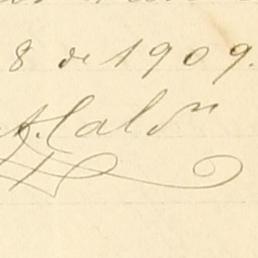 8 de 1909.
A. Caldn